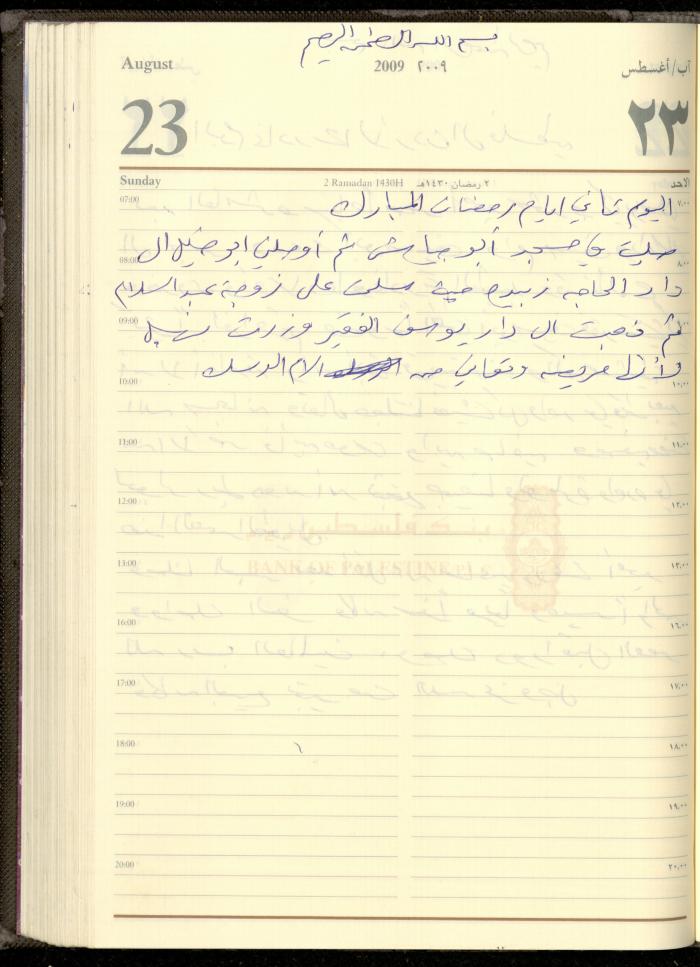 بسم الله الرحمن الرحيم
August 2009 ٢٠٠٩ آب/أغسطس
23 ٢٣
Sunday 2 Ramadan 1430H ٢ رمضان ١٤٣٠هـ الاحد
07:00 ٧,٠٠
اليوم ثاني ايام رمضان المبارك
صليت في مسجد أبو جياش ثم أوصلني ابو خليل ال
08:00 ٨,٠٠
دار الحاجه زبيده حيث سلمت على زوجة عبد السلام
09:00
ثم ذهبت ال دار يوسف الفقير وزرت نبيل
لأنها مريضه وتعاني من الام
10:00 ١٠,٠٠
11:00 ١١,٠٠
12:00 ١٢,٠٠
بنك فلسطين
BANK OF PALESTINE PLC
13:00 ١٣,٠٠
16:00 ١٦,٠٠
17:00 ١٧,٠٠
18:00 ١٨,٠٠
19:00 ١٩,٠٠
20:00 ٢٠,٠٠